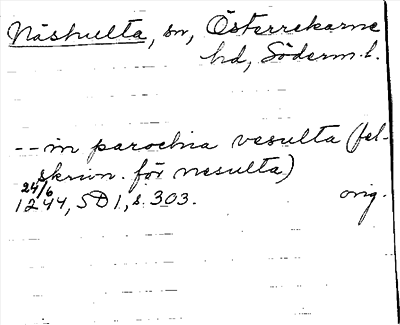 Näshulta, sn, Österrekarne
hd, Söderm. l.
-- in parochia vesulta (fel-
skrivn. för nesulta)
24/6
1244, SD 1, s. 303. orig.